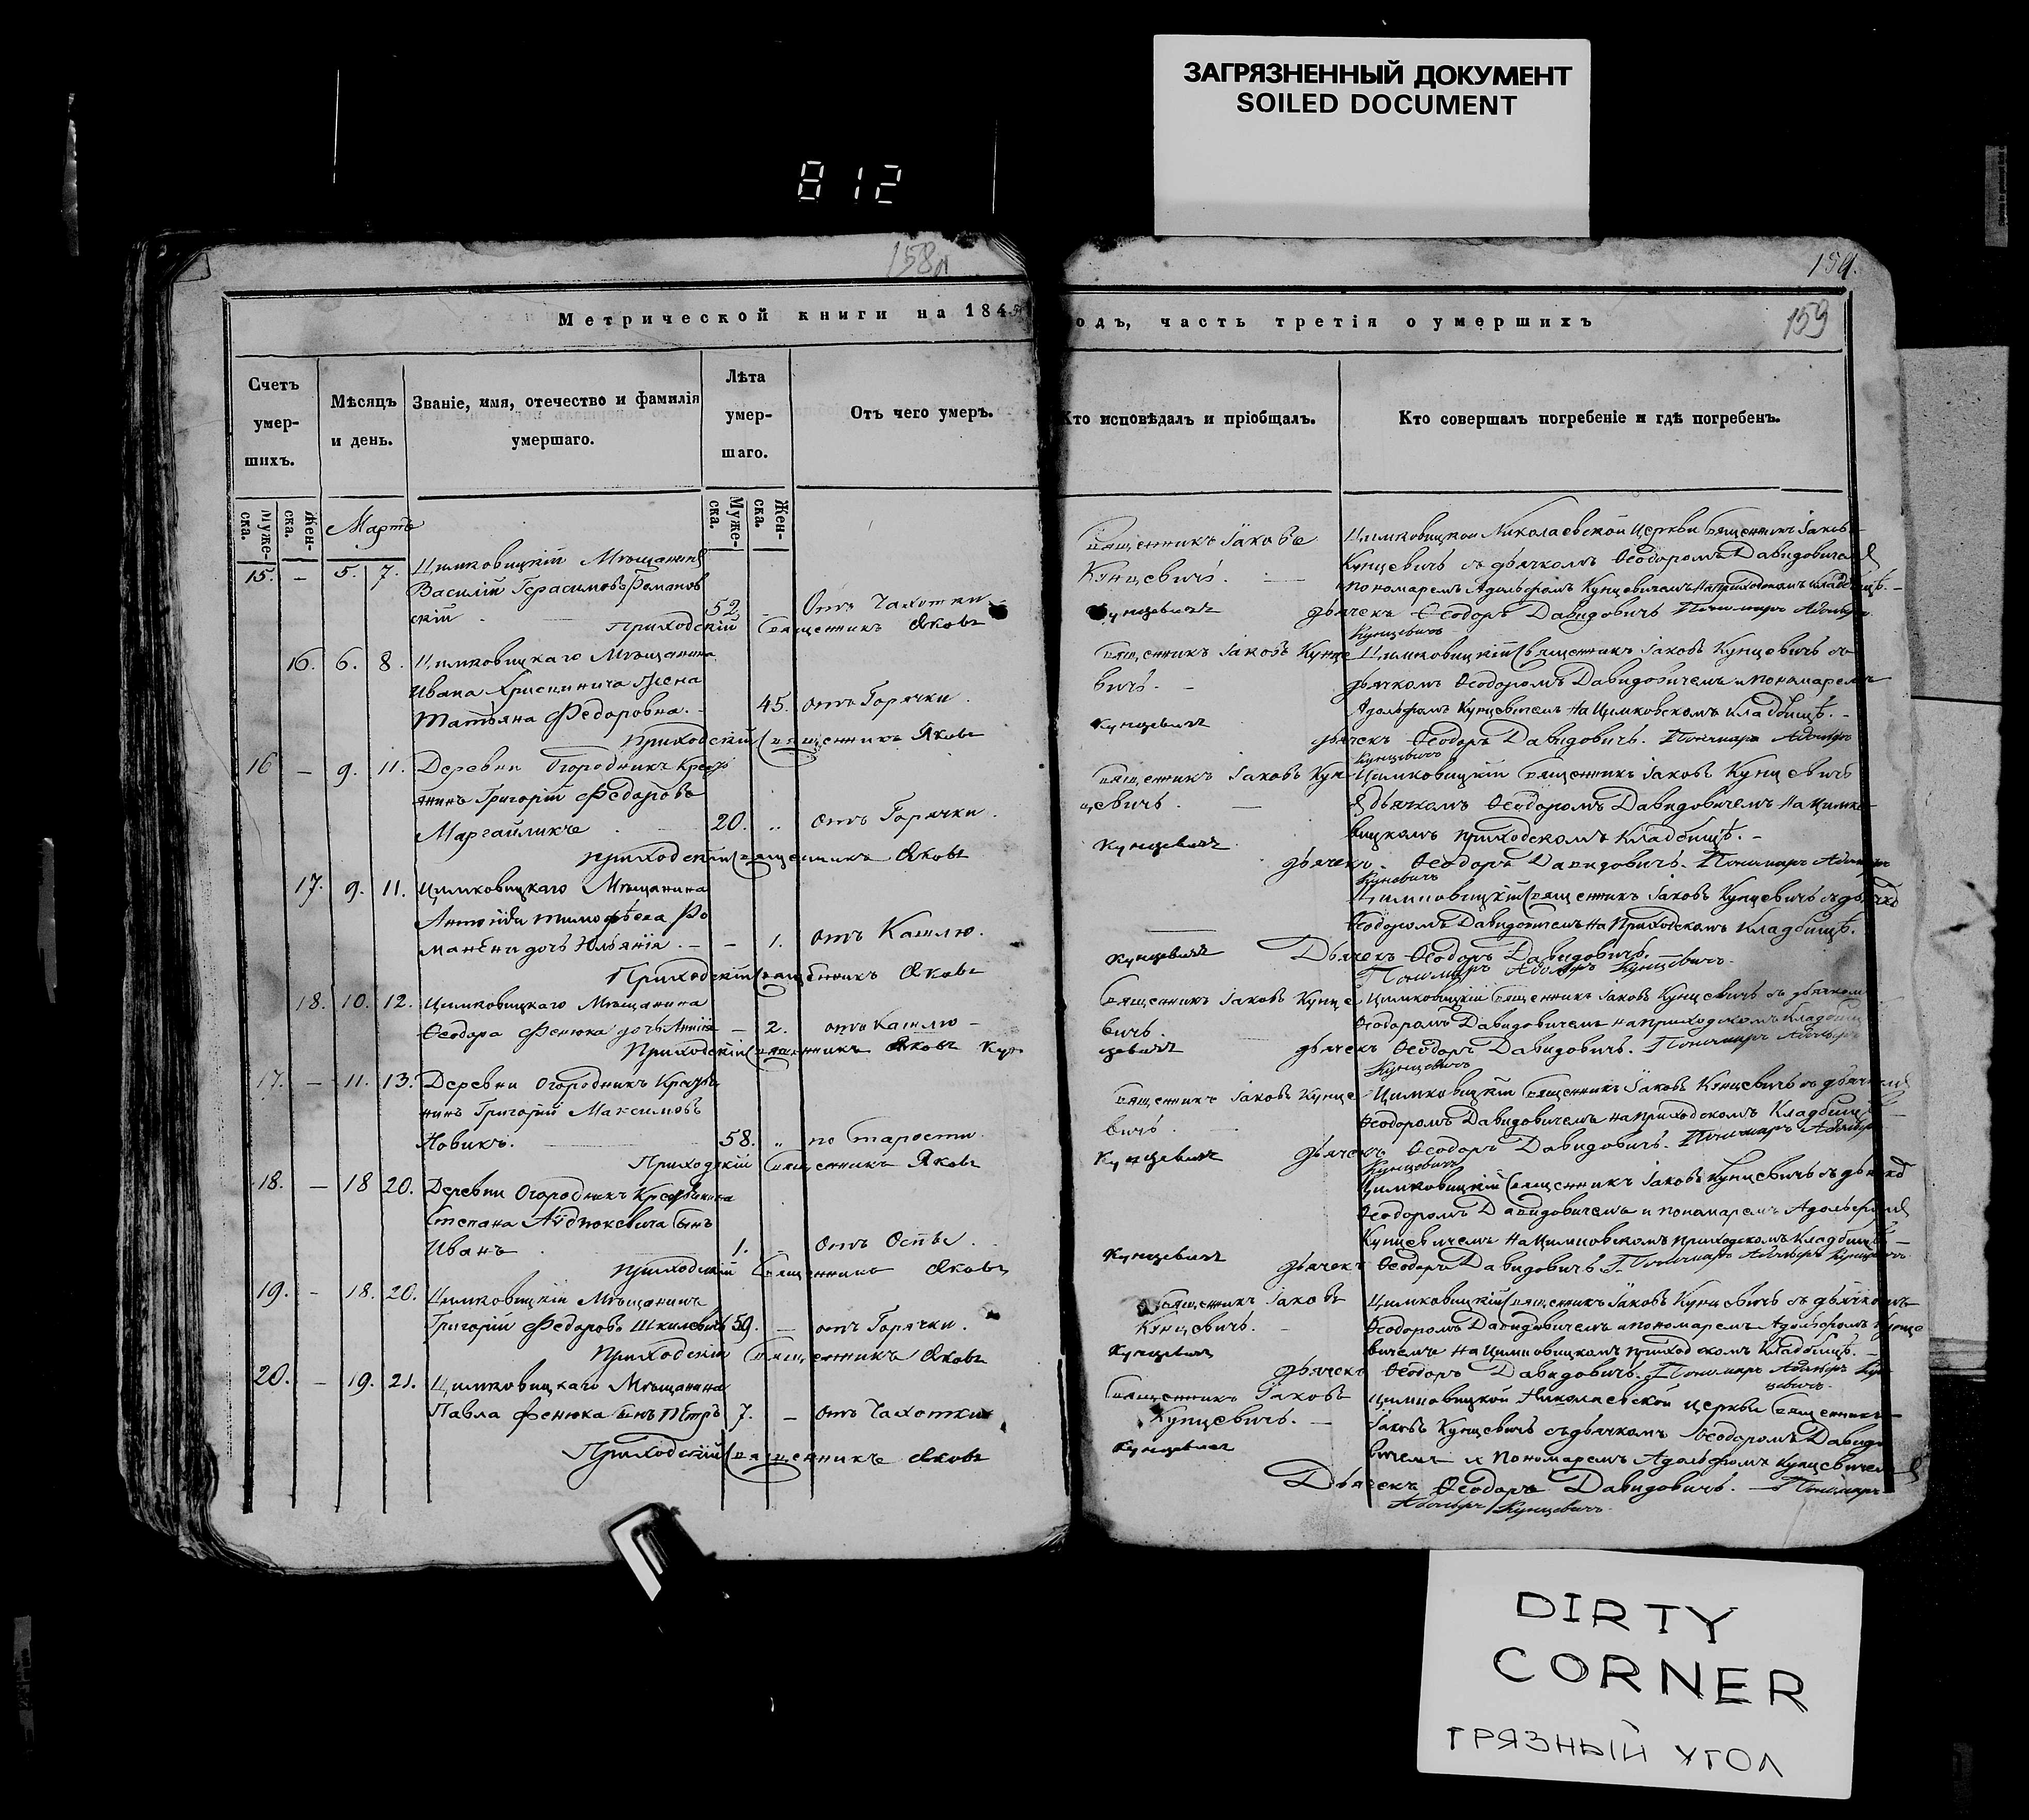 ЗАГРЯЗНЕННЫЙ ДОКУМЕНТ
SOILED DOCUMENT
812
158
159.
159
Метрической книги на 184
одъ, часть третія о умершихъ
Счетъ умер-шихъ.
Мѣсяцъ и день.
Званіе, имя, отечество и фамилія умершаго.
Лѣта умер-шаго.
Отъ чего умеръ.
Кто исповѣдалъ и пріобщалъ.
Кто совершалъ погребеніе и гдѣ погребенъ.
Муже-ска.
Жен-ска.
Мартъ
Муже-ска.
Жен-ска.
15. – 5. 7. Цимковицкій Мѣщанинъ
Василій Герасимовъ Романов
скій 52. – Отъ Чахотки
Приходскій Священникъ Яковъ
Священникъ Іаковъ
Кунцевичъ.
Кунцевичъ
Цимковицкой Николаевской Церкви Священникъ Іаковъ
Кунцевичъ съ дьячкомъ Ѳеодоромъ Давидовичемъ
пономаремъ Адольфомъ Кунцевичемъ на приходскомъ кладбищѣ.
дьячекъ Ѳеодоръ Давидовичъ Пономаръ Адольфъ
Кунцевичъ
16. 6. 8. Цимковицкаго Мѣщанина
Ивана жена
Татьяна Федоровна. 45. отъ Горячки.
Приходскій Священникъ Яковъ
Священникъ Іаковъ Кунце
вичъ.
Кунцевичъ
Цимковицкій Священникъ Іаковъ Кунцевичъ съ
дьячкомъ Ѳеодоромъ Давидовичемъ и пономаремъ
Адольфомъ Кунцевичемъ на Цимковскомъ Кладбищѣ.
дьячекъ Ѳеодоръ Давидовичъ. Пономаръ Адольфъ
Кунцевичъ
16 – 9. 11. Деревни Огородникъ Кресть
янинъ Григорій Федоровъ
20. „ отъ Горячки.
приходскій Священникъ Яковъ
Священникъ Іаковъ Кун
цевичъ.
Кунцевичъ
Цимковицкій Священникъ Іаковъ Кунцевичъ
съ дьячкомъ Ѳеодоромъ Давидовичемъ на Цимко
вицкомъ приходскомъ кладбищѣ.
дьячекъ. Ѳеодоръ Давидовичъ. Пономаръ Адольфъ
Кунцевичъ
17. 9. 11. Цимковицкаго Мѣщанина
Ро
дочь – 1. отъ Кашлю.
Приходскій Священникъ Яковъ
Кунцевичъ
Цимковицкій Священникъ Іаковъ Кунцевичъ съ дьячко
Ѳеодоромъ Давидовичемъ на Приходскомъ Кладбищѣ.
Дьячекъ Ѳеодоръ Давидовичъ.
Пономаръ Адольфъ Кунцевичъ.
18. 10. 12. Цимковицкаго Мѣщанина
Ѳеодора Фенюка дочь Анна – 2. отъ Кашлю –
Приходскій Священникъ Яковъ Кун
Священникъ Іаковъ Кунце
вичъ.
цевичъ
Цимковицкій Священникъ Іаковъ Кунцевичъ съ дьячкомъ
Ѳеодоромъ Давидовичемъ на приходскомъ кладбищ
дьячекъ Ѳеодоръ Давидовичъ. Пономаръ Адольфъ
Кунцевичъ
17. – 11. 13. Деревни Огородникъ Крестья
нинъ Григорій Максимовъ
Новикъ. 58. „ по Старости.
Приходскій Священникъ Яковъ
Священникъ Іаковъ Кунце
вичъ.
Кунцевичъ
Цимковицкій Священникъ Іаковъ Кунцевичъ съ дьячкомъ
Ѳеодоромъ Давидовичемъ на приходскомъ Кладбищѣ
дьячекъ Ѳеодоръ Давидовичъ. Пономаръ Адольфъ
Кунцевичъ
18. – 18 20. Деревни Огородникъ Крестьянина
Степана сынъ
Иванъ 1. отъ Оспы.
приходскій Священникъ Яковъ
Кунцевичъ
Цимковицкій Священникъ Іаковъ Кунцевичъ съ дьячко
Ѳеодоромъ Давидовичемъ и пономаремъ Адольфомъ
Кунцевичемъ на Цимковскомъ приходскомъ Кладбищѣ
дьячекъ Ѳеодоръ Давидовичъ. Пономаръ Адольфъ Кунцевичъ
19. – 18. 20. Цимковицкій Мѣщанинъ
Григорій Федоровъ Шкилевичъ 59. – отъ Горячки.
приходскій Священникъ Яковъ
Священникъ Іаковъ
Кунцевичъ.
Кунцевичъ
Цимковицкій Священникъ Іаковъ Кунцевичъ съ дьячкомъ
Ѳеодоромъ Давидовичемъ и пономаремъ Адольфомъ Кунце
вичемъ на Цимковицкомъ приходскомъ кладбищѣ.
дьячекъ Ѳеодоръ Давидовичъ. Пономаръ Адольфъ Кун
цевичъ.
20. – 19. 21. Цимковицкаго Мѣщанина
Павла Фенюка сынъ Петръ 7. – отъ Чахотки
Приходскій Священникъ Яковъ
Священникъ Іаковъ
Кунцевичъ.
Кунцевичъ
Цимковицкой Николаевской церкви Священникъ
Іаковъ Кунцевичъ съ дьячкомъ Ѳеодоромъ Давидо
вичемъ и пономаремъ Адольфомъ Кунцевичемъ
Дьячекъ Ѳеодоръ Давидовичъ. Пономаръ
Адольфъ Кунцевичъ.
DIRTY
CORNER
ГРЯЗНЫЙ УГОЛ